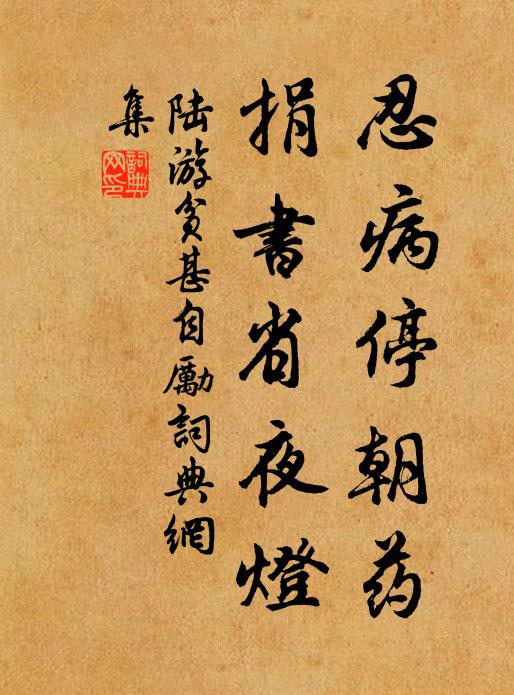 忍病停朝药
捐書省夜燈
陆游貧甚自勵詞典網
集
詞典
网印